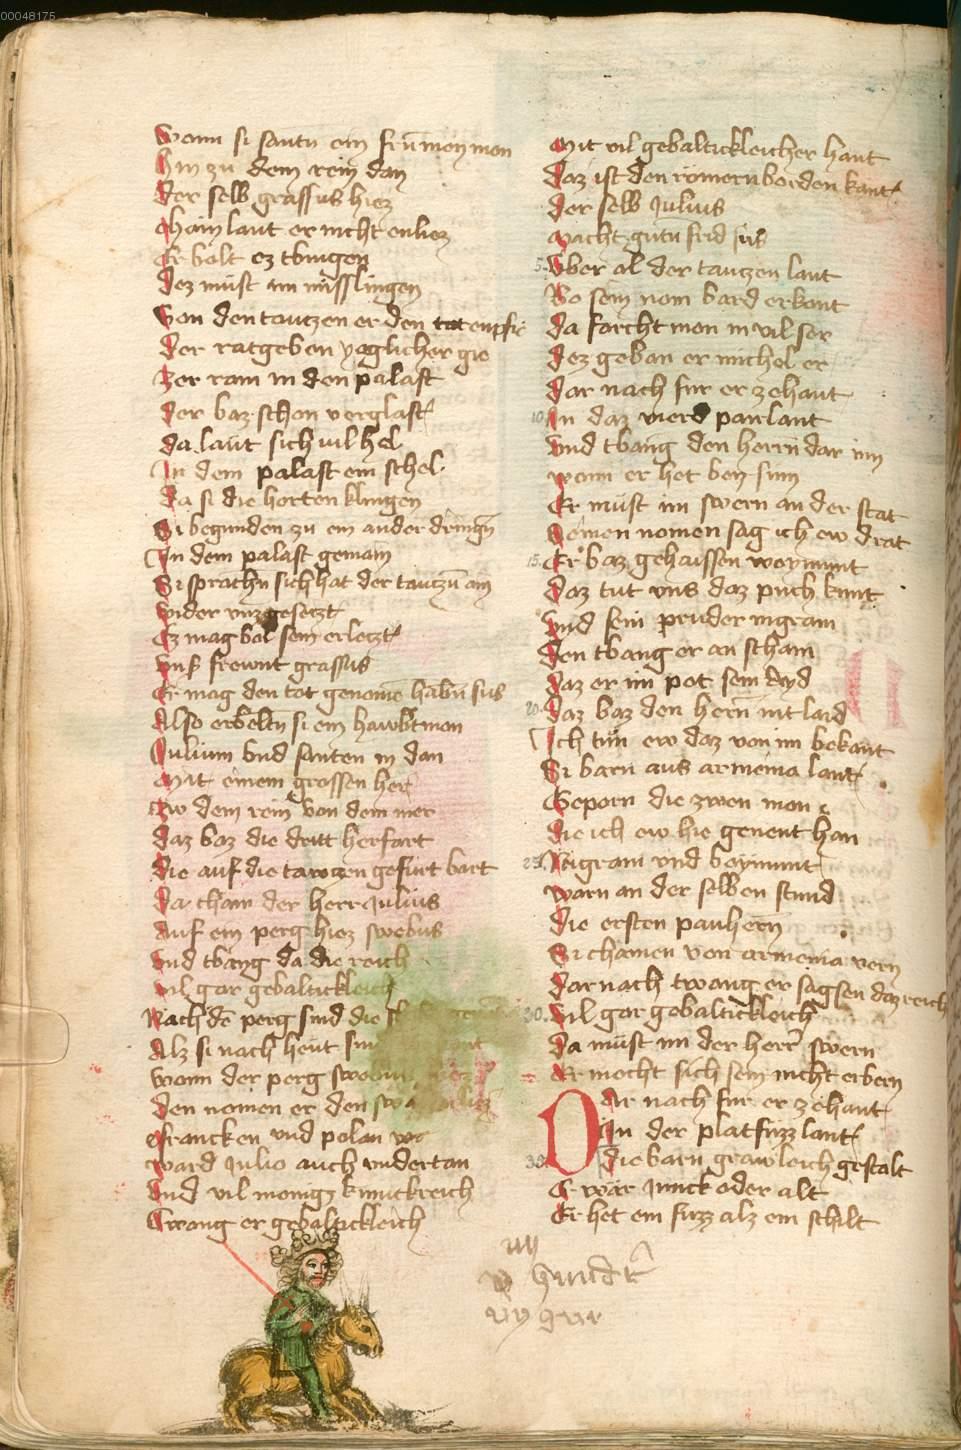 00048175
Wann si santn ein frumen man
hin zu dem rein dan
der selb grassus hiez
chain laut er nicht enliez
Er bolt ez tbingen
dez must im misslingen
von den tautzen er den tot enpfie
der ratgeben yeglicher gie
Zer ram in den palast
der baz schon verglast
da laut sich vil hel
In dem palast ein schel
da si die horten klingen
Si begunden zu ein ander dringn
In dem palast gemain
Si sprachn sich hat der tautzn ain
wider vnz gesetzt
Ez mag bol sein erletzt
vnser frewnt grassus
Er mag den tot genomen habn sus
Also erbeltn si ein hawbtman
Julium vnd santen in dan
Mit einem grossen her
zw dem rein von dem mer
daz baz die dritt herfart
die auf die tawtzen gefurt bart
Da cham der herr Julius
Auf ein perg hiez swebus
vnd tbang da die reich
vil gar gebaltickleich
Nach dem perg sind die
Alz si nach heut
wann der perg
den nomen er den
francken vnd polan
ward Julio auch vndertan
vnd vil monigz kunickreich
Twang er gebaltickleich
Mit vil gebaltickleicher hant
daz ist den römern borden kant
der selb Julius
macht gutn frid sus
5. Vber al der tautzen lant
Bo sein nom bard erkant
da forcht mon in vil ser
dez geban er michel er
dar nach fur er zehant
10. In daz vierd pairlant
vnd tbang den herrn dar inn
wann er het bey sinn
Er must im swern an der stat
Seinen nomen sag ich ew drat
15. Er baz gehaissen boymunt
daz tut vns daz puch kunt
vnd sein pruder ingram
den tbang er an scham
daz er im pot sein ayd
20. daz baz den hern nit laid
Ich tun ew daz von im bekant
Si barn aus armenia lant
Geporn die zwen man
die ich ew hie genent han
25. Ingram vnd boymunt
warn an der selben stund
die ersten pauhern
Si chamen von armenia vern
dar nach twang er sagsen daz reich
30. Vil gar gebaltickleich
da must im der herr swern
Er mocht sich sein nicht erbern
Dar nach fur er zehant
In der platfuzz lant
35. die barn grawleich gestalt
Er wär junck oder alt
Er het ein fuzz alz ein schilt